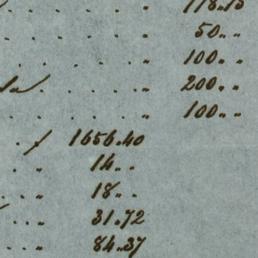 . . . . . „ 118.13
. . . . . „ 50„ „
. . . . . „ 100„ „
. . . . „ 200„ „
. . . . . „ 100„ „
. . ƒ 1656.40
. . „ 14„ .
. . „ 18„ .
. . „ 31.72
. . . „ 84.37